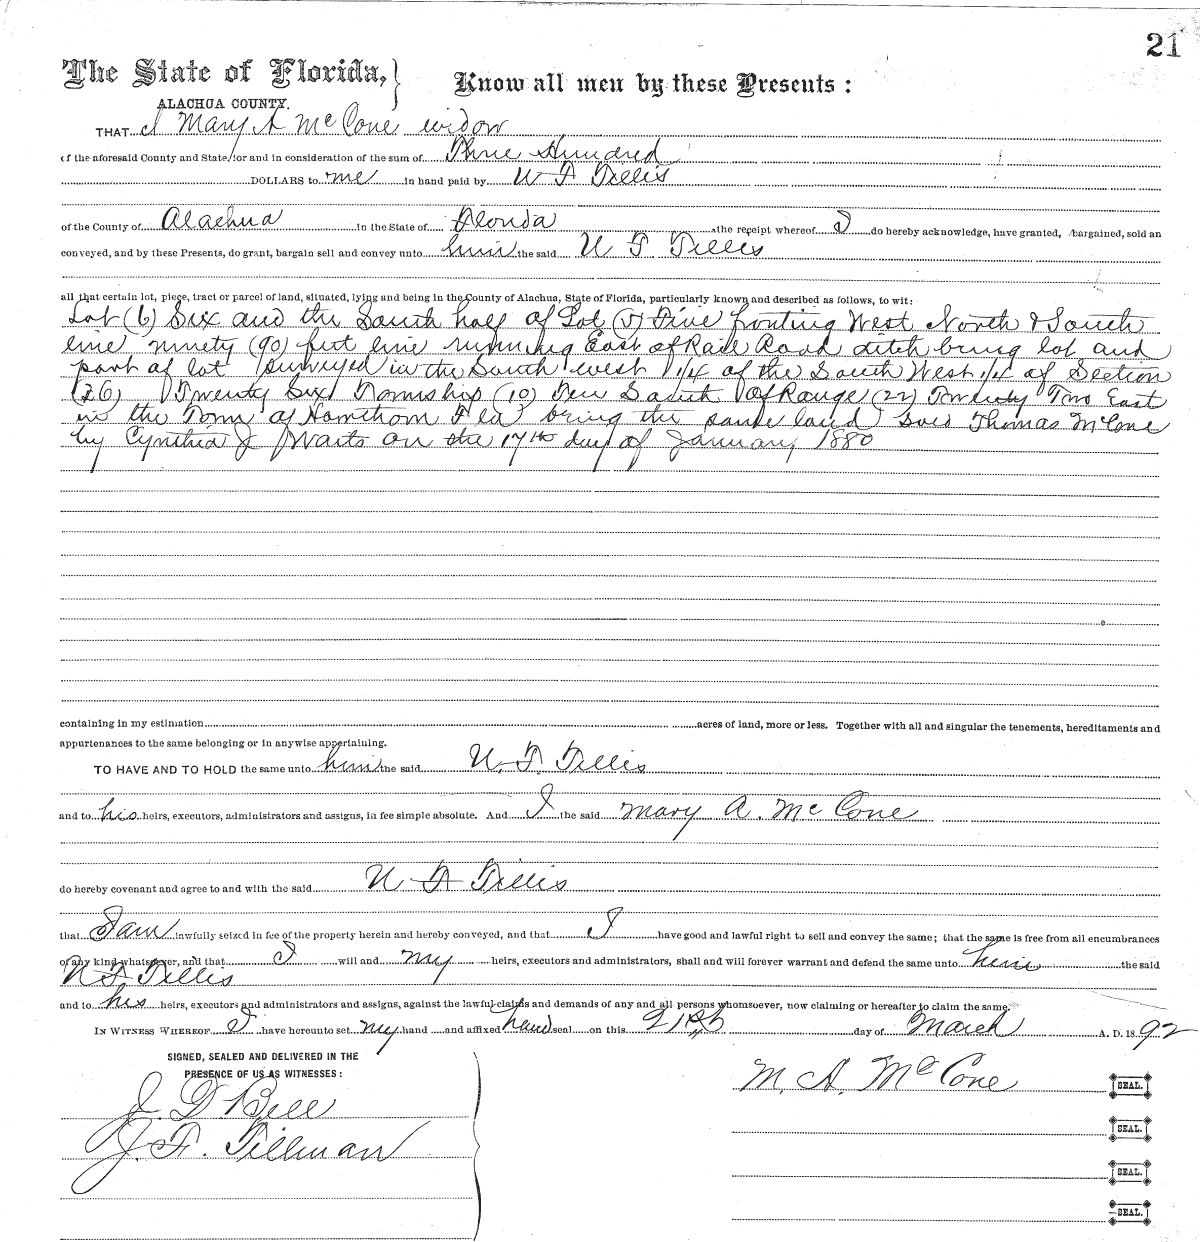 21
The State of Florida, Know all men by these Presents :
ALACHUA COUNTY.
THAT I Mary A McCone widow
of the aforesaid County and State, for and in consideration of the sum of Three Hundred
DOLLARS to me in hand paid by W F Tillis
of the County of Alachua in the State of Florida the receipt whereof I do hereby acknowledge, have granted, bargained, sold an
conveyed, and by these Presents, do grant, bargain sell and convey unto him the said W F Tillis
all that certain lot, piece, tract or parcel of land, situated, lying and being in the County of Alachua, State of Florida, particularly known and described as follows, to wit:
Lot (6) Six and the South half of Lot (5) Five fronting West North & South
line ninety (90) feet line running East of Rail Road ditch being lot and
part of lot surveyed in the South west 1/4 of the South West 1/4 of Section
(26) Twenty Six Township (10) Ten South Of Range (22) Twenty Two East
in the Town of Hawthorn Fla being the same land Sold Thomas McCone
by Cynthia J Warts on the 17th day of January 1880
containing in my estimation acres of land, more or less. Together with all and singular the tenements, hereditaments and
appurtenances to the same belonging or in anywise appertaining.
TO HAVE AND TO HOLD the same unto him the said W. F. Tillis
and to his heirs, executors, administrators and assigns, in fee simple absolute. And I the said Mary A. McCone
do hereby covenant and agree to and with the said W F Tillis
that I am lawfully seized in fee of the property herein and hereby conveyed, and that I have good and lawful right to sell and convey the same; that the same is free from all encumbrances
of any kind whatsoever, and that I will and my heirs, executors and administrators, shall and will forever warrant and defend the same unto him the said
W F Tillis
and to his heirs, executors and administrators and assigns, against the lawful claims and demands of any and all persons whomsoever, now claiming or hereafter to claim the same.
IN WITNESS WHEREOF I have hereunto set my hand and affixed hand seal on this 21st day of March A. D. 1892
SIGNED, SEALED AND DELIVERED IN THE
PRESENCE OF US AS WITNESSES :
M. A. McCone SEAL.
J. D Bell
SEAL.
J. F. Tillman
SEAL.
SEAL.